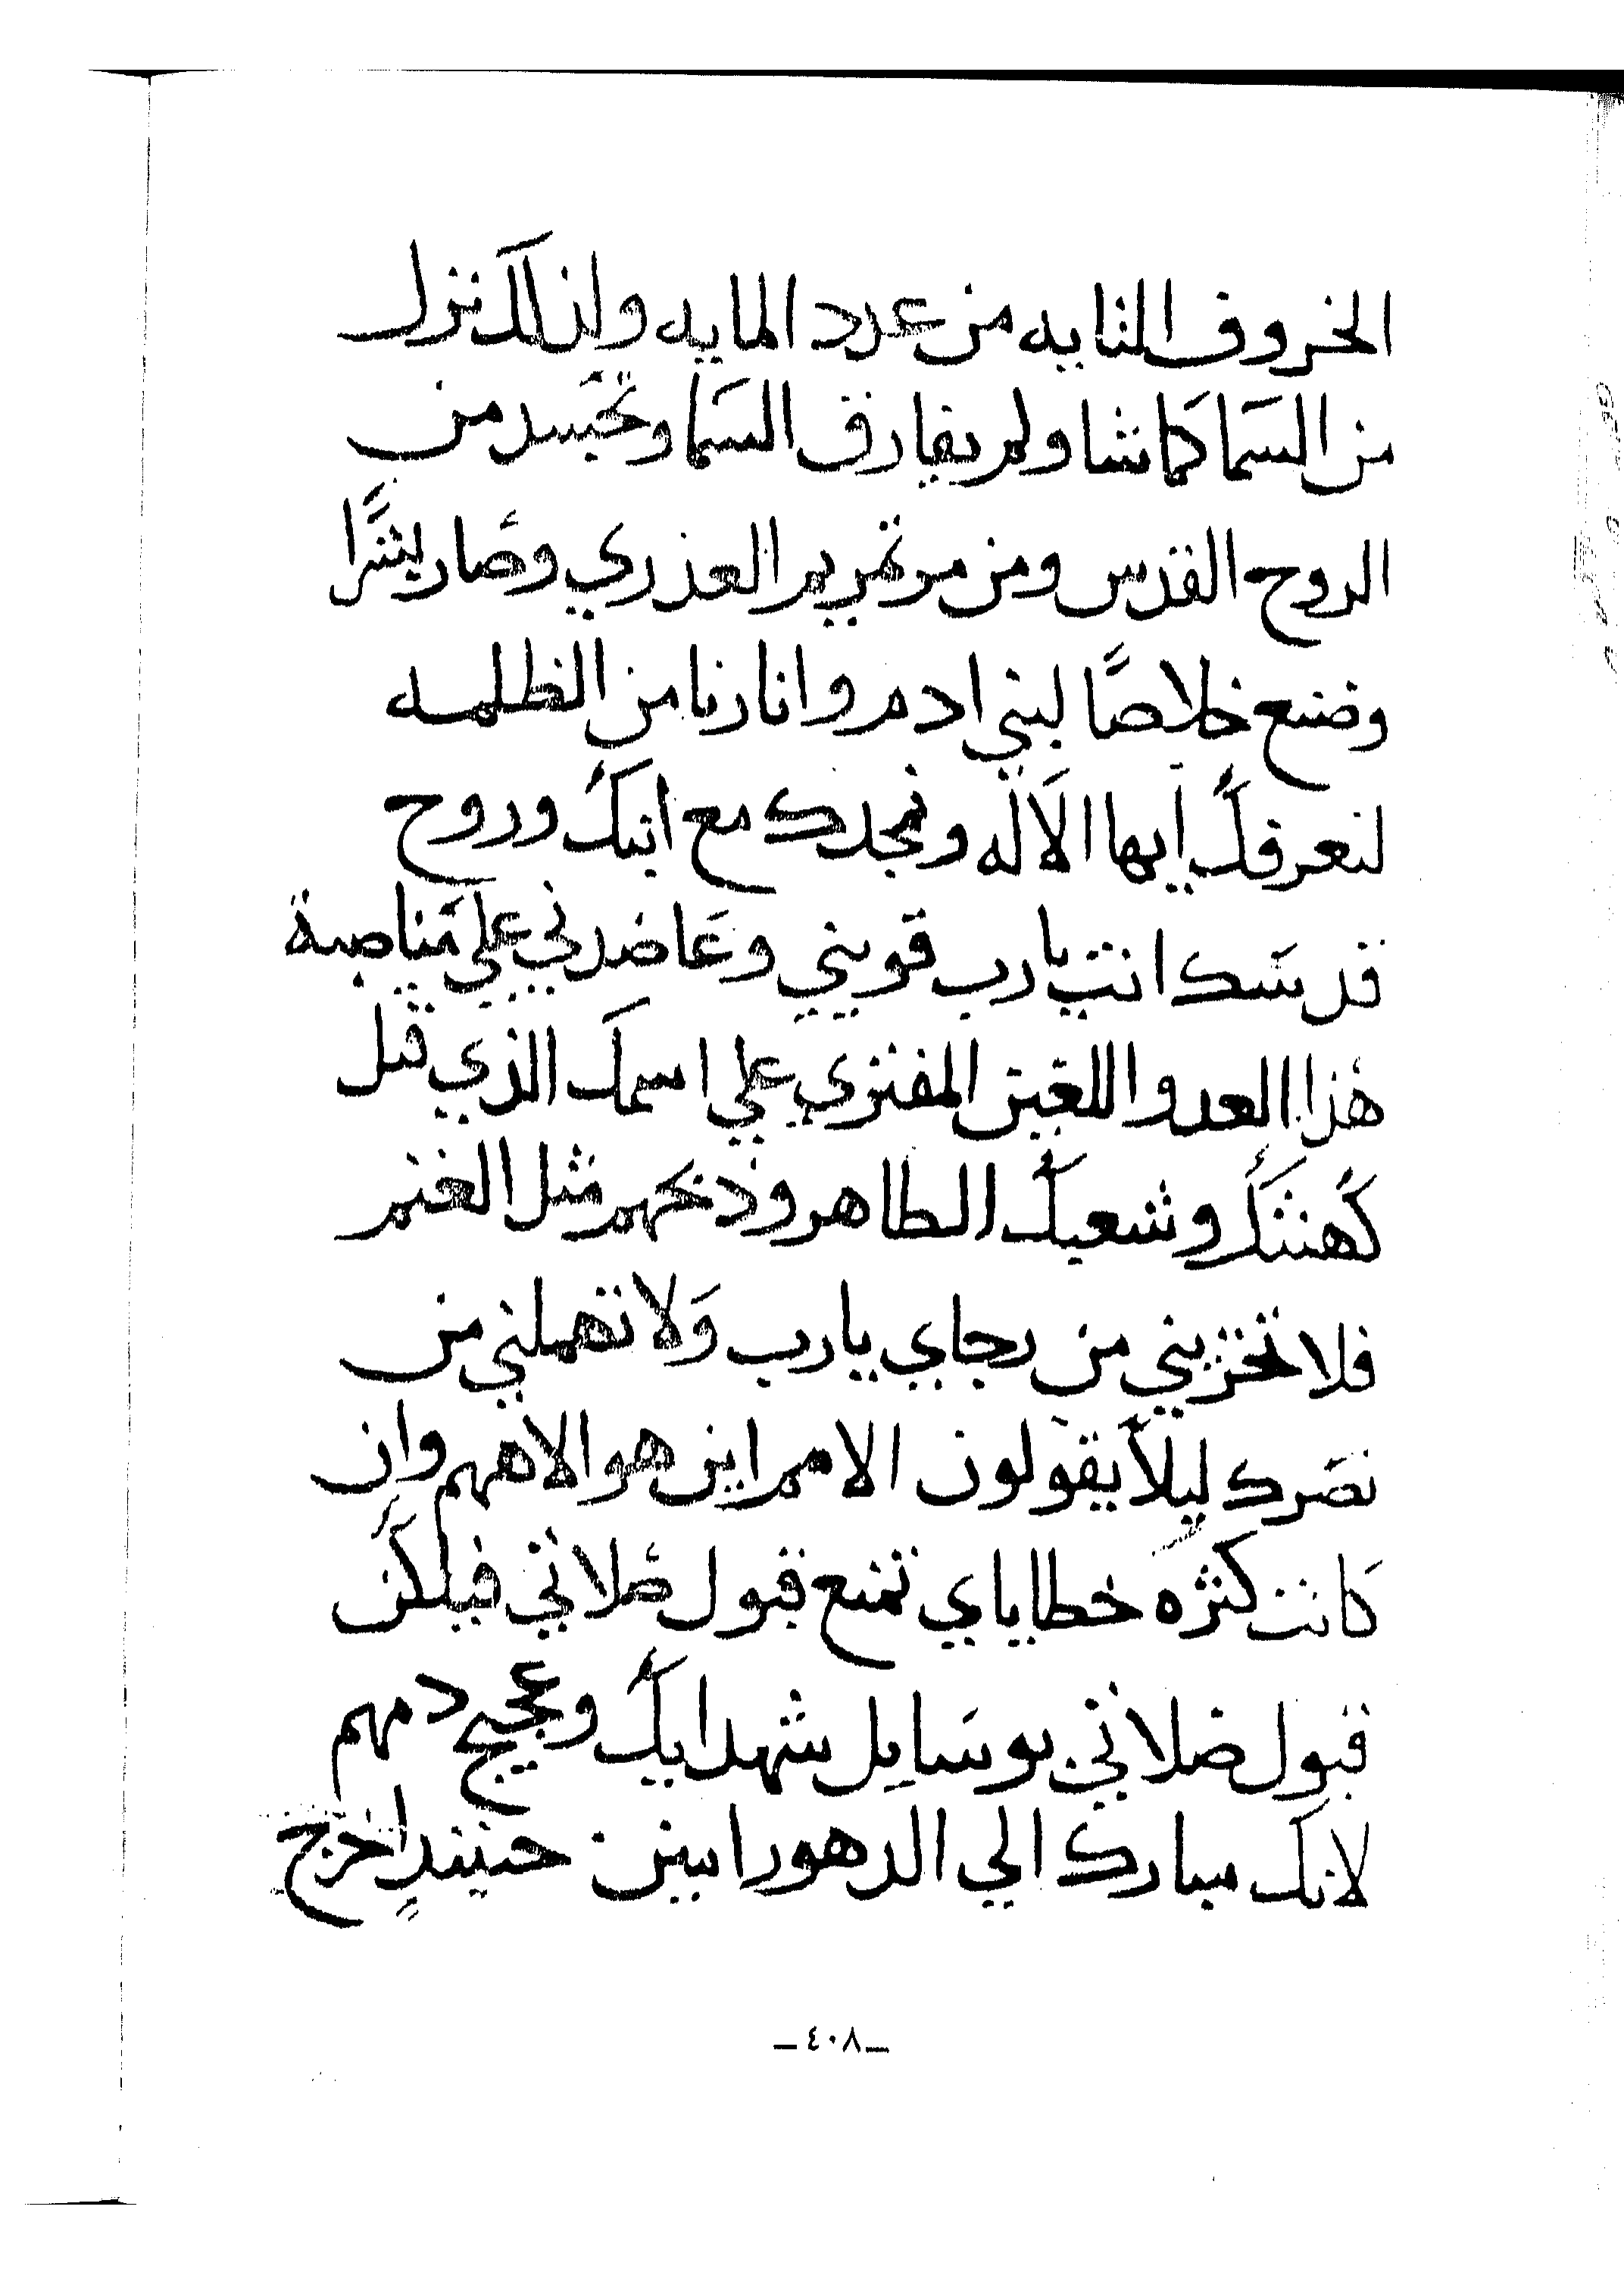 الخروف التايه من عدد المايه ولذلك نزل
من السما كما نشا ولم يفارق السما وتجسد من
الروح القدس ومن مرتمريم العذري وصار بشرًا
وصنع خلاصًا لبني ادم وانارنا من الظلمه
لنعرفك ايها الالاه ونمجدك مع ابيك وروح
قدسك انت يارب قويني وعاضدني علي مناصبة
هذا العدو اللعين المفتري علي اسمك الذي قتل
كهنتك وشعبك الطاهر وذبحهم مثل الغنم
فلا تخزيني من رجاي يارب ولا تهملني من
نصرك ليلا يقولون الامم اين هو الاههم وان
كانت كثره خطاياي تمنع قبول صلاتي فيلكن
قبول صلاتي بوسايل شهدايك وعجيج دمهم
لانك مبارك الي الدهور امين حينيدٍ اخرج
ـ٤٠٨ـ